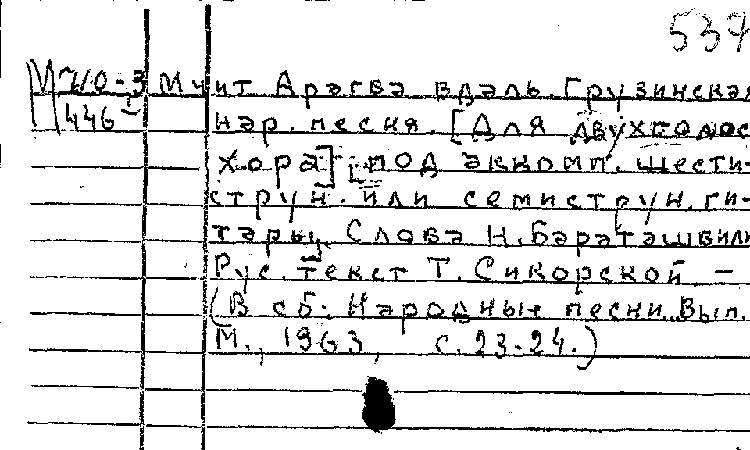 537
М 710-3 Мчит Арагва вдаль. Грузинская
446 нар. песня. [Для двухголос
хора] [под аккомп. шести-
струн. или семиструн. ги-
тары. Слова Н. Бараташвили
Рус. текст Т. Сикорской –
(В сб: Народные песни. Вып.
М., 1963, с. 23-24.)